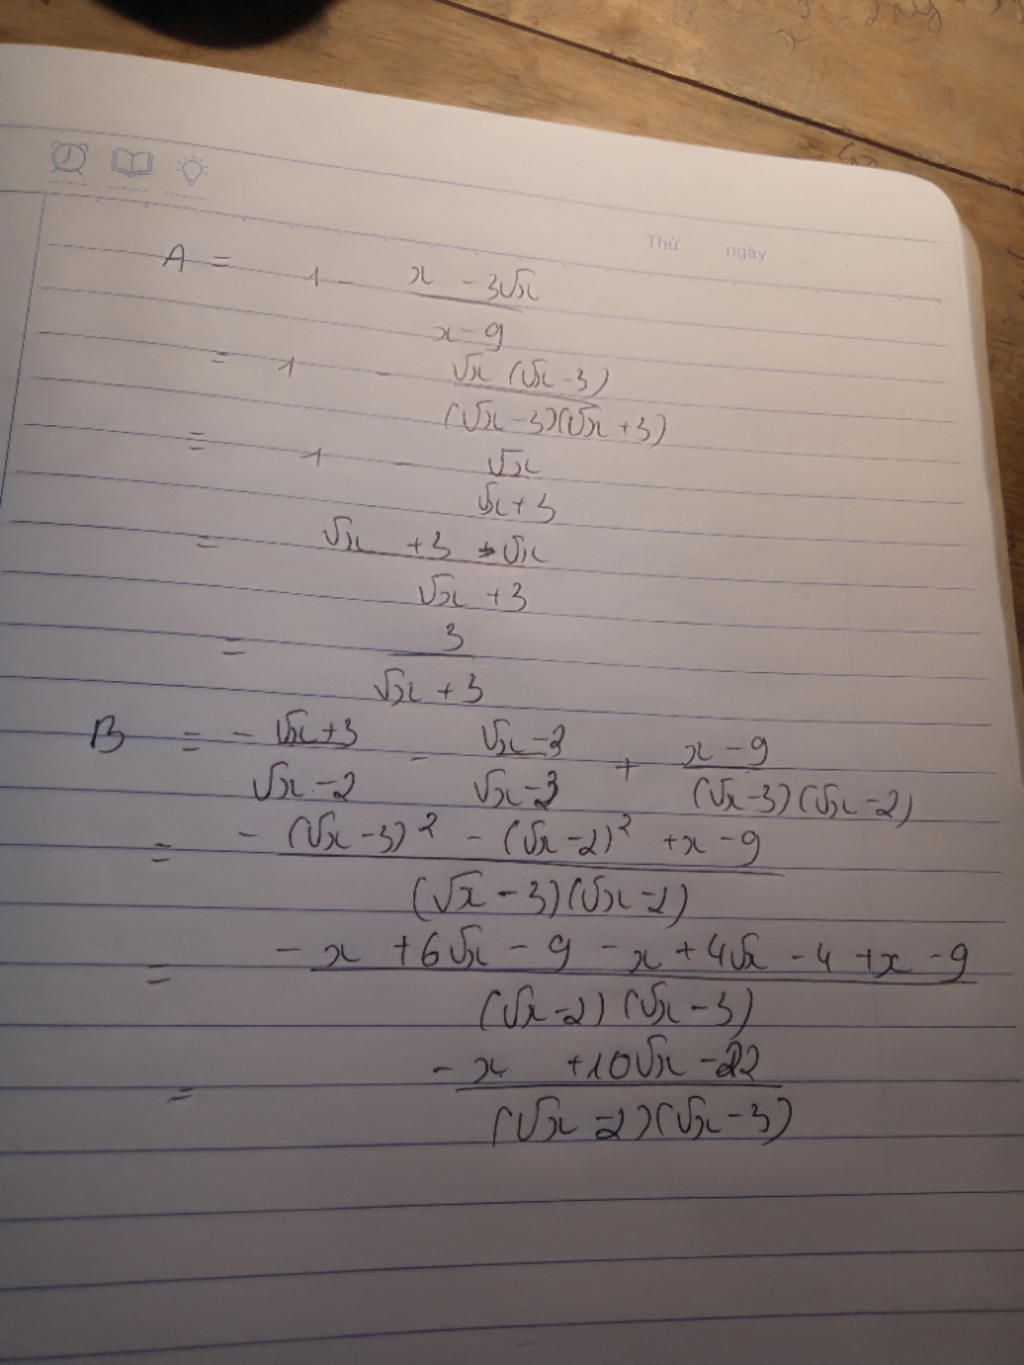 Thứ ngày
A = 1 - (x - 3√x)/(x - 9)
= 1 - (√x (√x - 3))/((√x - 3)(√x + 3))
= 1 - √x/(√x + 3)
= (√x + 3 - √x)/(√x + 3)
= 3/(√x + 3)
B = - (√x + 3)/(√x - 2) - (√x - 2)/(√x - 3) + (x - 9)/((√x - 3)(√x - 2))
= (- (√x - 3)² - (√x - 2)² + x - 9)/((√x - 3)(√x - 2))
= (- x + 6√x - 9 - x + 4√x - 4 + x - 9)/((√x - 2)(√x - 3))
= (- x + 10√x - 22)/((√x - 2)(√x - 3))